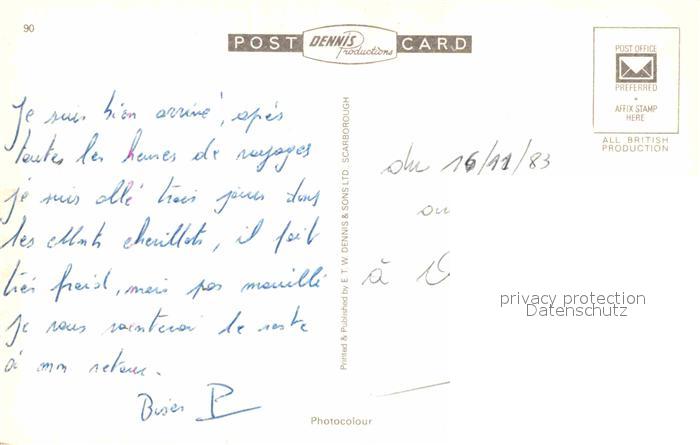 90
POST DENNIS Productions CARD
POST OFFICE
PREFERRED
AFFIX STAMP
HERE
ALL BRITISH
PRODUCTION
Je suis bien arrivé, après
toutes les heures de voyages
je suis allé trois jours dans
les Monts chevillots, il fait
très froid, mais pas mouillé
Je vous raconterai le reste
à mon retour.
Bises P
Printed & Published by E. T. W. DENNIS & SONS LTD., SCARBOROUGH
du 16/11/83
au
à
privacy protection
Datenschutz
Photocolour